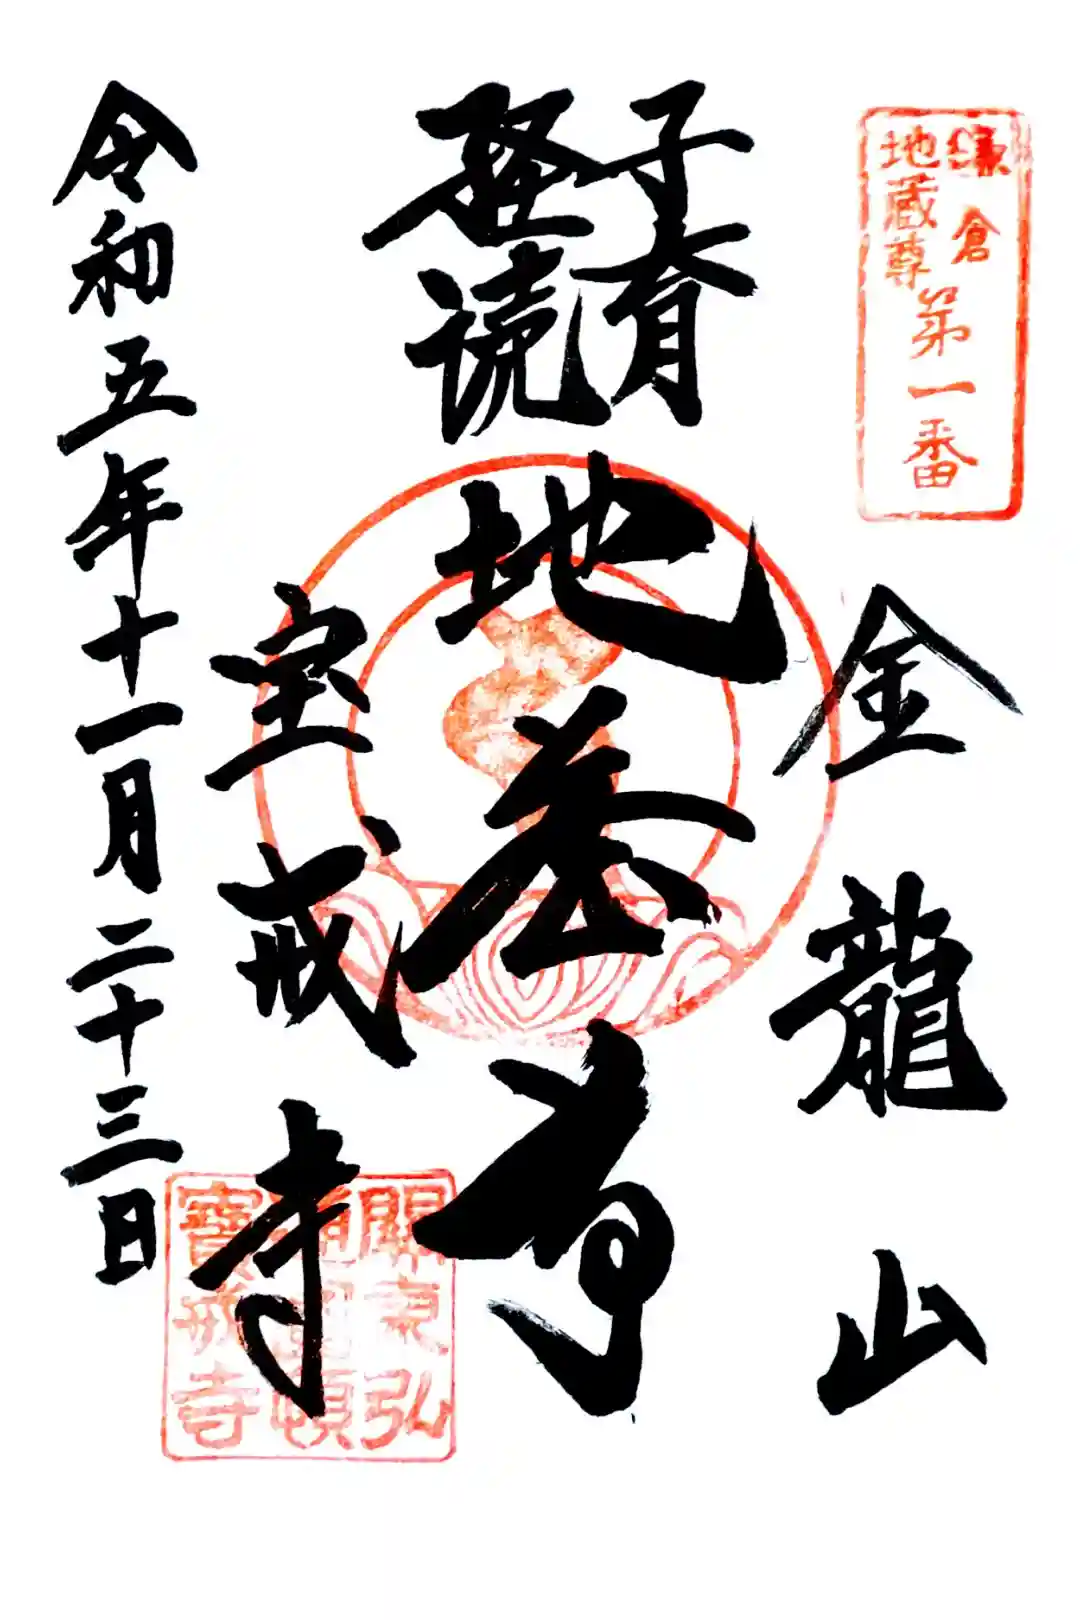 鎌倉
地蔵尊
第一番
金龍山
子育
経読
地蔵尊
宝戒寺
關東弘
通圓頓
寶戒寺
令和五年十一月二十三日